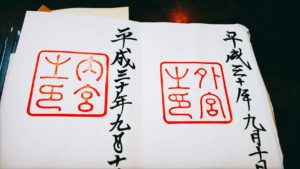 平成三十年九月十日
外宮
之印
平成三十年九月十
内宮
之印